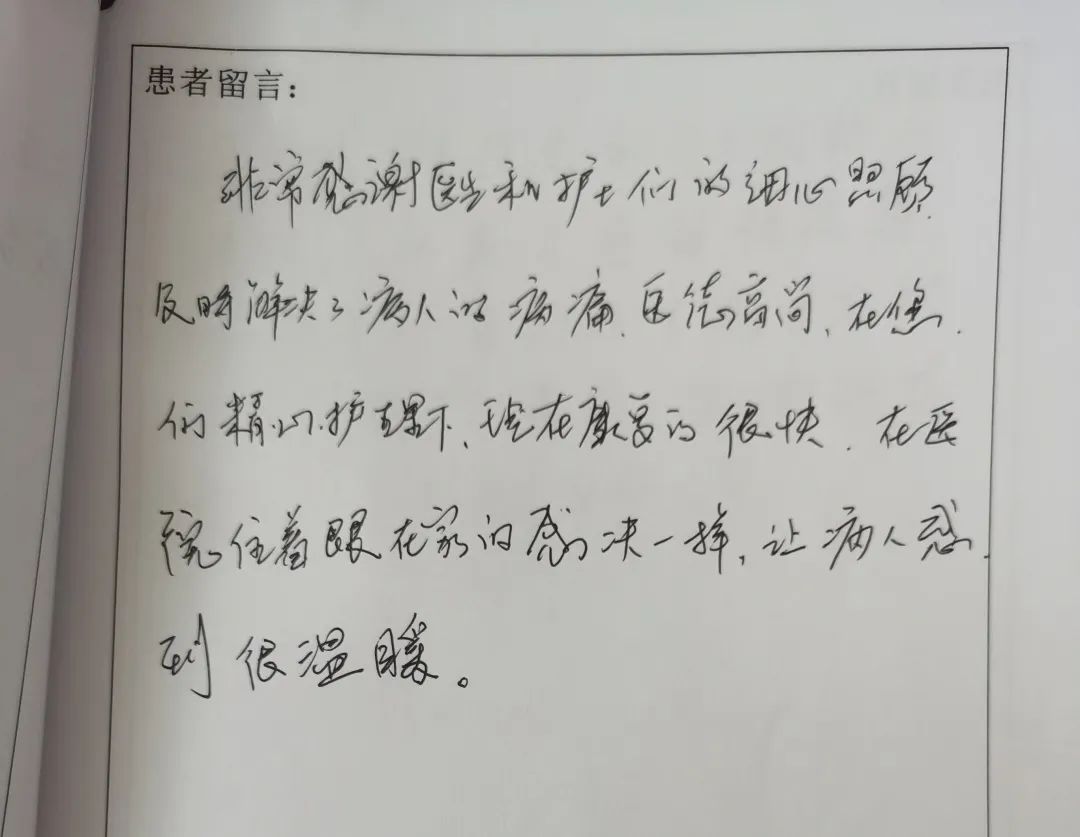 患者留言：
非常感谢医生和护士们的细心照顾
及时解决了病人的病痛、医德高尚、在您
们精心护理下、现在康复的很快、在医
院住着跟在家的感决一样，让病人感
到很温暖。